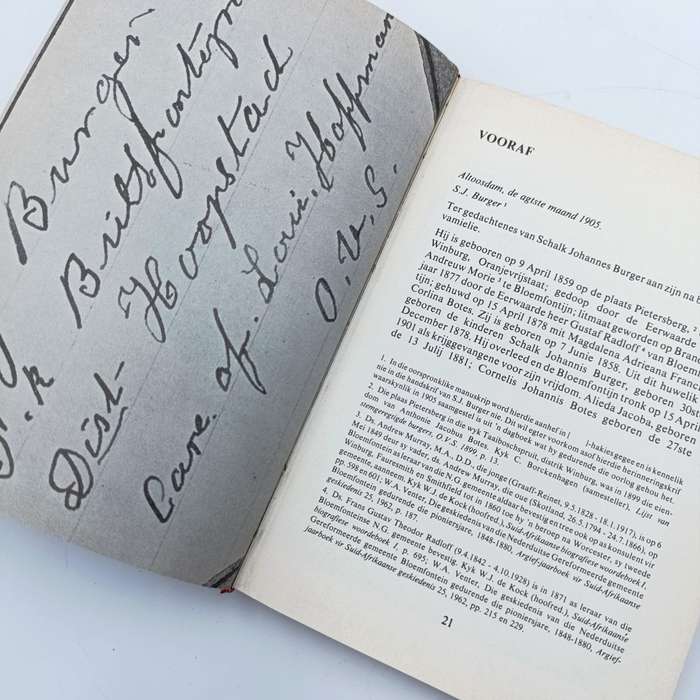 Burger
Britsfontein
Dist- Hoopstad
Care of. Louis. Hoffman
O. V. S.
VOORAF
Altoosdam, de agtste maand 1905.
S.J. Burger ¹
Ter gedachtenes van Schalk Johannes Burger aan zijn na
vamielie.
Hij is gebooren op 9 April 1859 op de plaats Pietersberg, ²
Winburg, Oranjevrijstaat; gedoop door de Eerwaarde
Andreuw Morie ³ te Bloemfontijn; litmaat geworden op Brand
jaar 1877 door de Eerwaarde heer Gustaf Radloff ⁴ van Bloem
tijn; gehuwd op 15 April 1878 met Magdalena Adrieana Fran
Corlina Botes. Zij is geboren op 7 Junie 1858. Uit dit huwelik
geboren de kinderen Schalk Johannis Burger, geboren 30d
December 1878. Hij overleed en de Bloemfontijn tronk op 15 April
1901 als krijggevangene voor zijn vrijdom. Alieda Jacoba, geboren
de 13 Julij 1881; Cornelis Johannis Botes geboren de 27ste
1. In die oorspronklike manuskrip word hierdie aanhef in | |-hakies gegee en is kennelik
nie in die handskrif van S.J. Burger nie. Dit wil egter voorkom asof hierdie herinneringskrif
waarskynlik in 1905 saamgestel is uit 'n dagboek wat hy gedurende die oorlog gehou het.
2. Die plaas Pietersberg in die wyk Taaiboschspruit, distrik Winburg, was in 1899 die eien-
dom van Anthonie Jacobus Botes. Kyk C. Borckenhagen (samesteller), Lijst van
stemgeregtigde burgers, O V-S, 1899, p. 13.
3. Ds. Andrew Murray, M.A., D.D., die jonge (Graaff-Reinet, 9.5.1828 - 18.1.1917), is op 6
Mei 1849 deur sy vader, ds. Andrew Murray, die oue (Skotland, 26.5.1794 - 24.7.1866), op
Bloemfontein as leraar van die N.G. gemeente aldaar bevestig en tree ook op as konsulent vir
Winburg, Fauresmith en Smithfield tot in 1860 toe hy 'n beroep na Worcester, sy tweede
gemeente, aanneem. Kyk W.J. de Kock (hoofred.), Suid-Afrikaanse biografiese woordeboek I,
pp. 598 en 601; W.A. Venter, Die geskiedenis van die Nederduitse Gereformeerde gemeente
Bloemfontein gedurende die pioniersjare, 1848-1880, Argief-jaarboek vir Suid-Afrikaanse
geskiedenis 25, 1962, p. 187.
4. Ds. Frans Gustav Theodor Radloff (9.4.1842 - 4.10.1928) is in 1871 as leraar van die
Bloemfonteinse N.G. gemeente bevestig. Kyk W.J. de Kock (hoofred.), Suid-Afrikaanse
biografiese woordeboek I, p. 695; W.A. Venter, Die geskiedenis van die Nederduitse
Gereformeerde gemeente Bloemfontein gedurende die pioniersjare, 1848-1880, Argief-
jaarboek vir Suid-Afrikaanse geskiedenis 25, 1962, pp. 215 en 229.
21